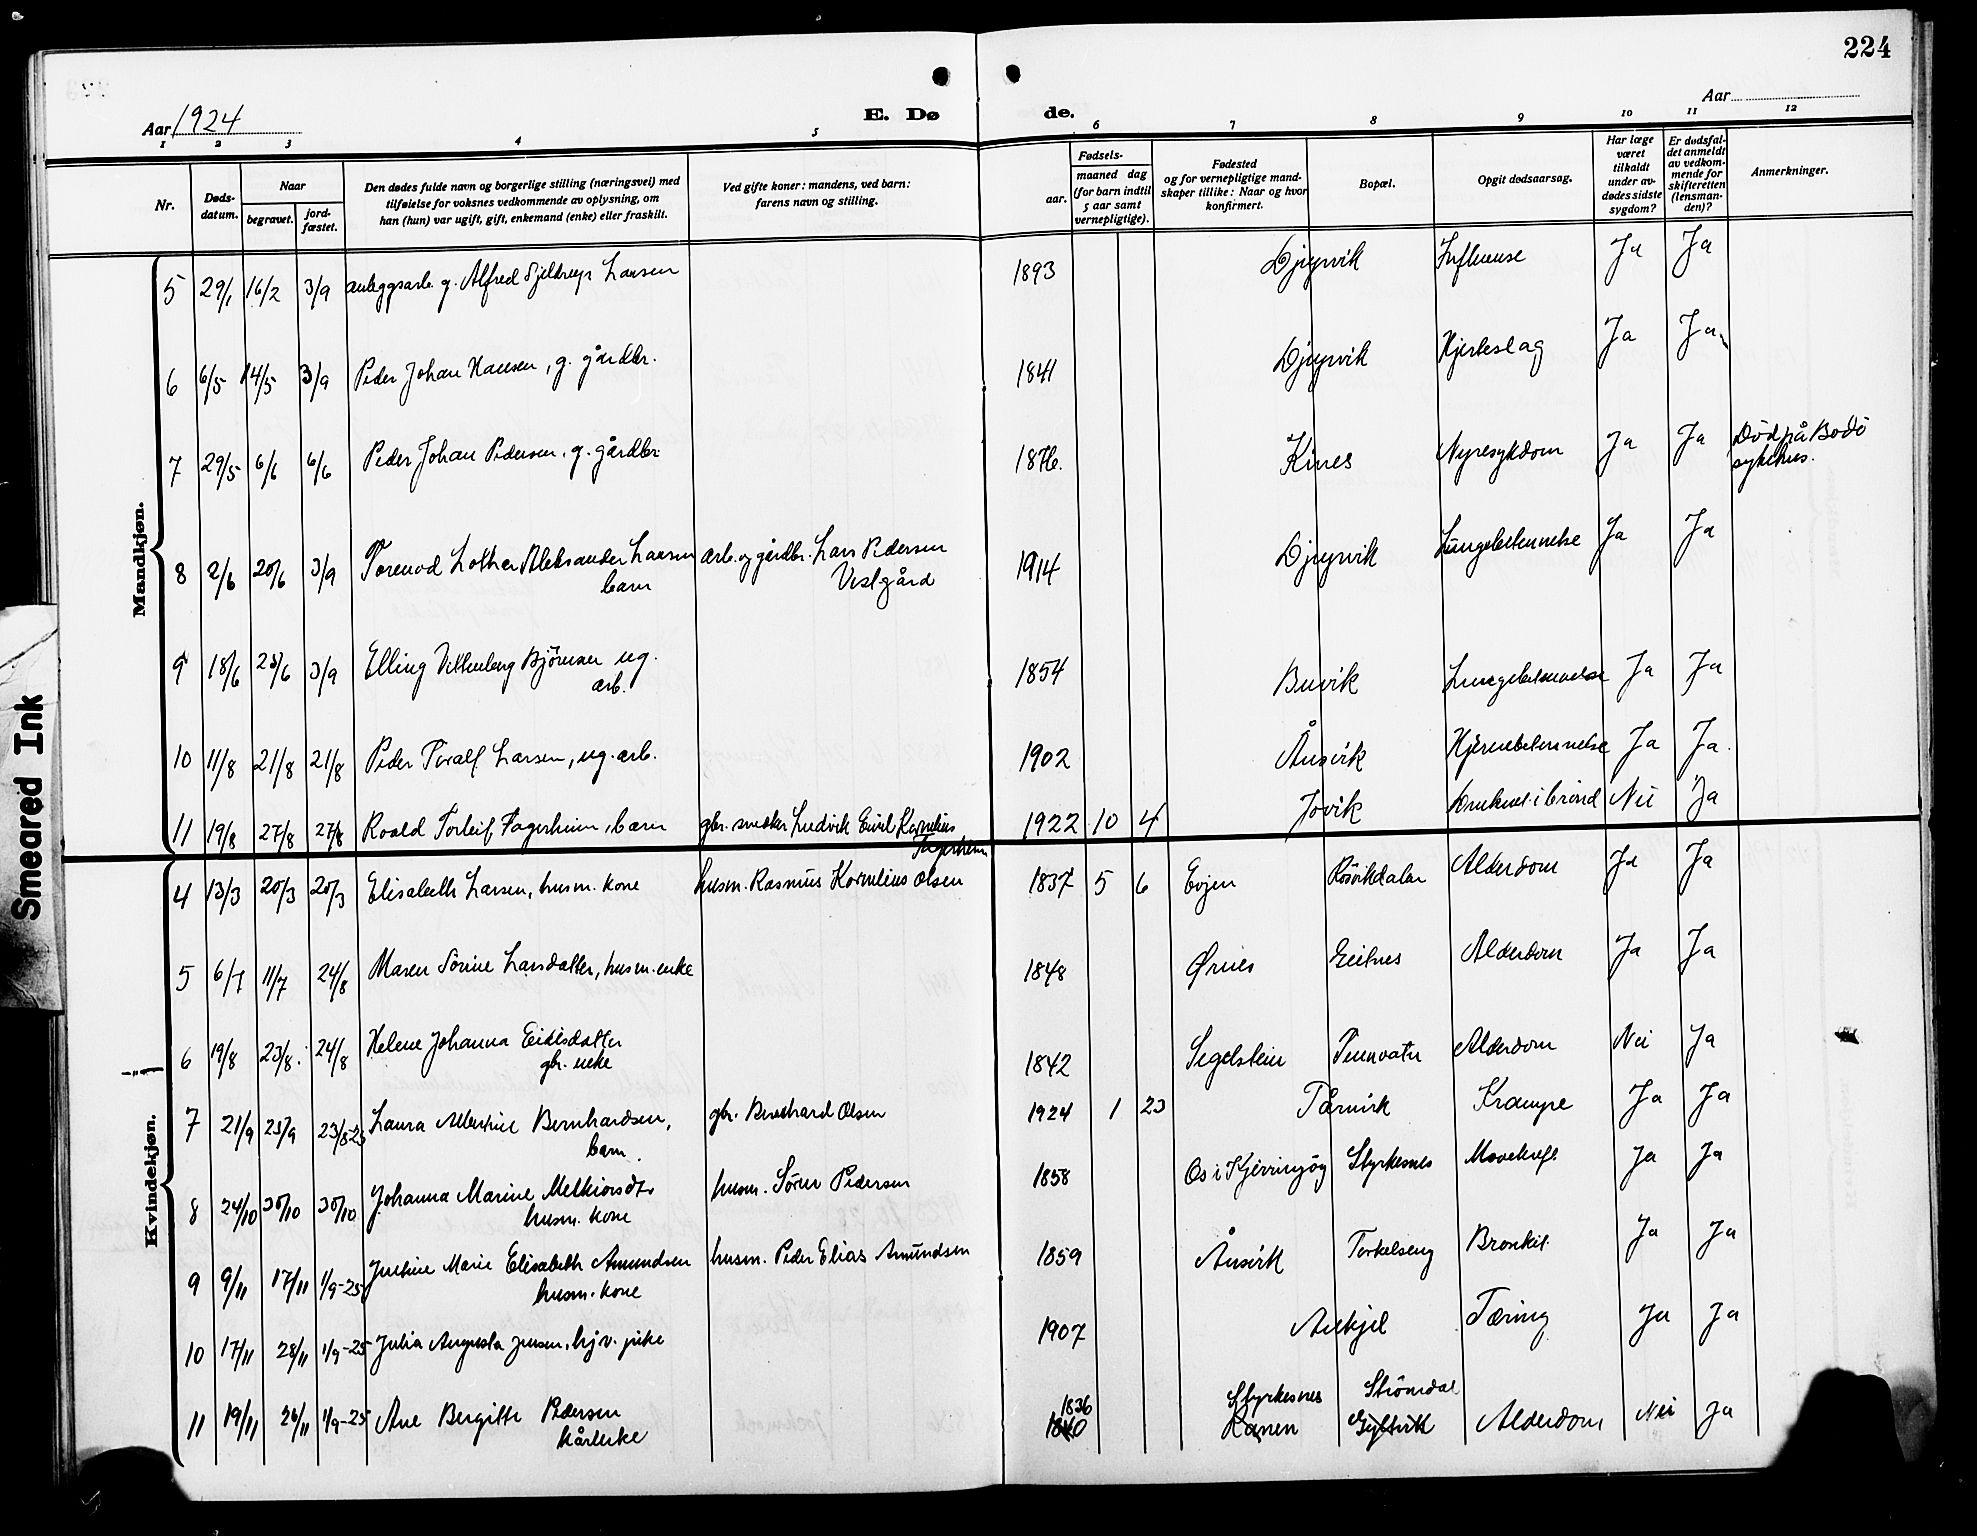 224
Aar 1924
E. Dø de.
Aar
1 2 3 4 5 6 7 8 9 10 11 12
Nr.
Døds-
datum.
Naar
begravet.
jord-
fæstet.
Den dødes fulde navn og borgerlige stilling (næringsvei) med
tilføielse for voksnes vedkommende av oplysning, om
han (hun) var ugift, gift, enkemand (enke) eller fraskilt.
Ved gifte koner: mandens, ved barn:
farens navn og stilling.
Fødsels-
aar.
maaned dag
(for barn indtil
5 aar samt
vernepligtige).
Fødested
og for vernepligtige mand-
skaper tillike: Naar og hvor
konfirmert.
Bopæl.
Opgit dødsaarsag.
Har læge
været
tilkaldt
under av-
dødes sidste
sygdom?
Er dødsfal-
det anmeldt
av vedkom-
mende for
skifteretten
(lensman-
den)?
Anmerkninger.
Mandkjøn.
5 29/1 16/2 3/9 anleggsarb. g. Alfred Larsen 1893 Djupvik Influense Ja Ja
6 6/5 14/5 3/9 Peder Johan Hansen, g. gårdbr. 1841 Djupvik Hjerteslag Ja Ja
7 29/5 6/6 6/6 Peder Johan Pedersen, g. gårdbr. 1876. Kines Nyresykdom Ja Ja Død på Bodø
sykehus.
8 2/6 20/6 3/9 Tormod Lothar Aleksander Larsen arb. og gårdbr. Lars Pedersen 1914 Djupvik Lungebetennelse Ja Ja
barn Vestgård
9 18/6 25/6 3/9 Elling Bjørnsen ug. 1854 Buvik Lungebetennelse Ja Ja
arb.
10 11/8 21/8 21/8 Peder Toralf Larsen, ug. arb. 1902 Ånsvik Hjernebetennelse Ja Ja.
11 19/8 27/8 27/8 Roald Torleif Fagerheim, barn gbr. snekker Ludvik Emil Kornelius 1922 10 4 Jovik Druknet i brønd Nei Ja
Fagerheim
Kvindekjøn.
4 13/3 20/3 20/3 Elisabeth Larsen, husm. kone husm. Rasmus Kornelius Olsen 1837 5 6 Evjen Røsvikdalen Alderdom Ja Ja
5 6/7 11/7 24/8 Maren Sørine Larsdatter, husm. enke 1848 Ørnes Eitnes Alderdom Ja Ja
6 19/8 23/8. 24/8 Helene Johanna Eidisdatter 1842 Segelstein Tennvatn Alderdom Nei Ja
gbr. enke
7 21/9 25/9 23/8-25 Laura Albertine Bernhardsen, gbr. Bernhard Olsen 1924 1 23 Tårnvik Krampe Ja Ja
barn.
8 24/10 30/10 30/10 Johanna Marine Melkiorsdtr husm. Sören Pedersen 1858 Os i Kjerringøy Styrkesnes Mavekreft Ja Ja
husm. kone
9 9/11 17/11 1/9-25 Justine Marie Elisabeth Amundsen husm. Peder Elias Amundsen 1859 Ånsvik Torkelseng Bronkit Ja Ja
husm. kone
10 17/11 28/11 1/9-25 Julia Augusta Jensen, hj.v. pike 1907 Aukjel Tæring Ja Ja
11 19/11 26/11 1/9-25 Ane Bergitte Pedersen 1836 1840 Styrkesnes Ranen Strömdal Alderdom Nei Ja
kårenke
Smeared Ink